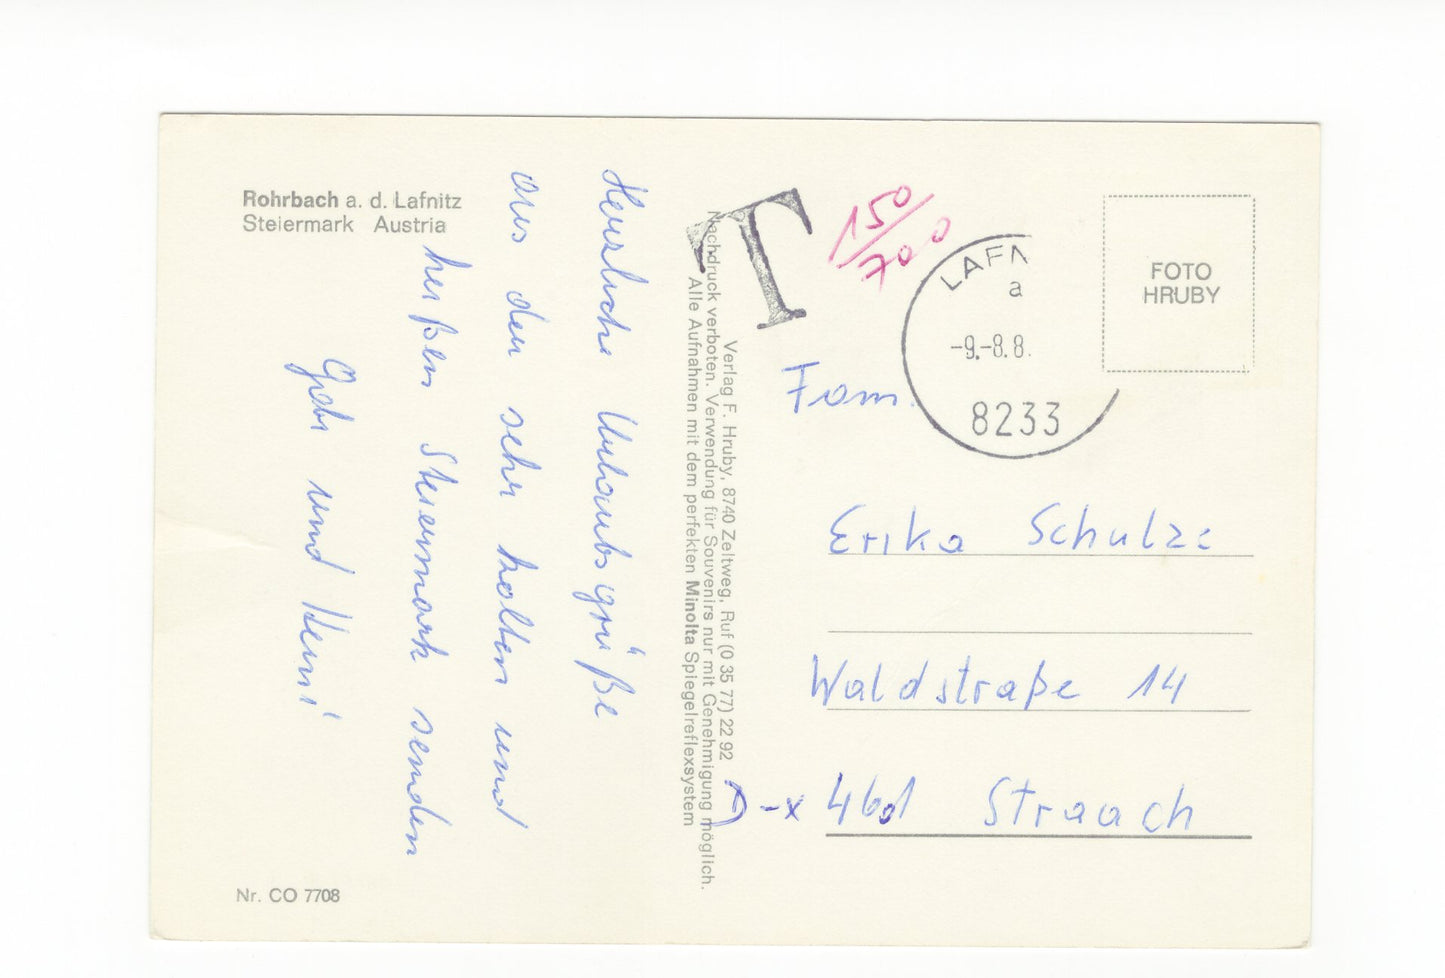 Rohrbach a. d. Lafnitz
Steiermark Austria
Herzliche Urlaubsgrüße
aus der sehr kalten und
heißen Steiermark senden
Gabi und Heini
Nr. CO 7708
Verlag F. Hruby, 8740 Zeltweg, Ruf (0 35 77) 22 92
Nachdruck verboten. Verwendung für Souvenirs nur mit Genehmigung möglich.
Alle Aufnahmen mit dem perfekten Minolta Spiegelreflexsystem
T
150/700
LAFN
a
-9.-8.8.
8233
FOTO
HRUBY
Fam.
Erika Schulze
Waldstraße 14
D-x 4601 Straach